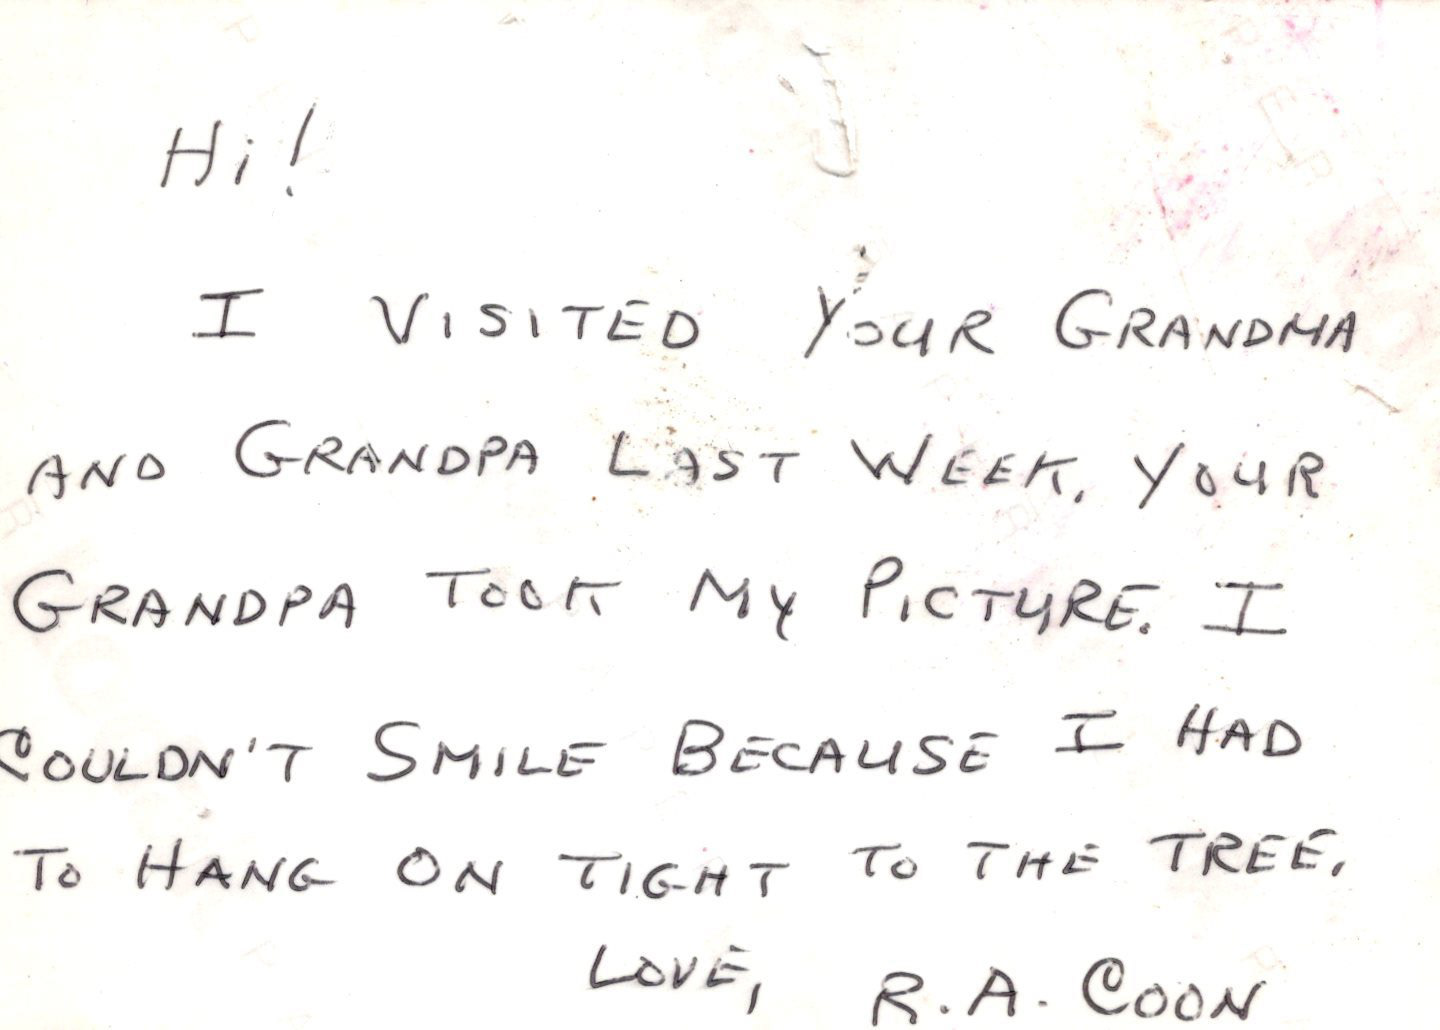 Hi!
I VISITED YOUR GRANDMA
AND GRANDPA LAST WEEK. YOUR
GRANDPA TOOK MY PICTURE. I
COULDN'T SMILE BECAUSE I HAD
TO HANG ON TIGHT TO THE TREE.
LOVE, R.A. COON